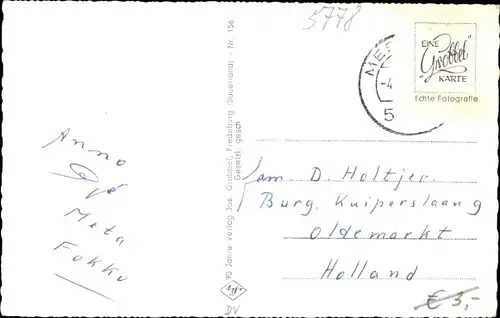 5778
EINE
"Grobbel"
KARTE
Echte Fotografie
ME
-4.
5
90 Jahre Verlag Jos. Grobbel, Fredeburg (Sauerland) - Nr. 156
Gesetzl. gesch
Agfa
DV
Anno
Meta
Fokko
Fam. D. Holtjer.
Burg. Kuiperslaang
Oldemarkt
Holland
€ 3,-